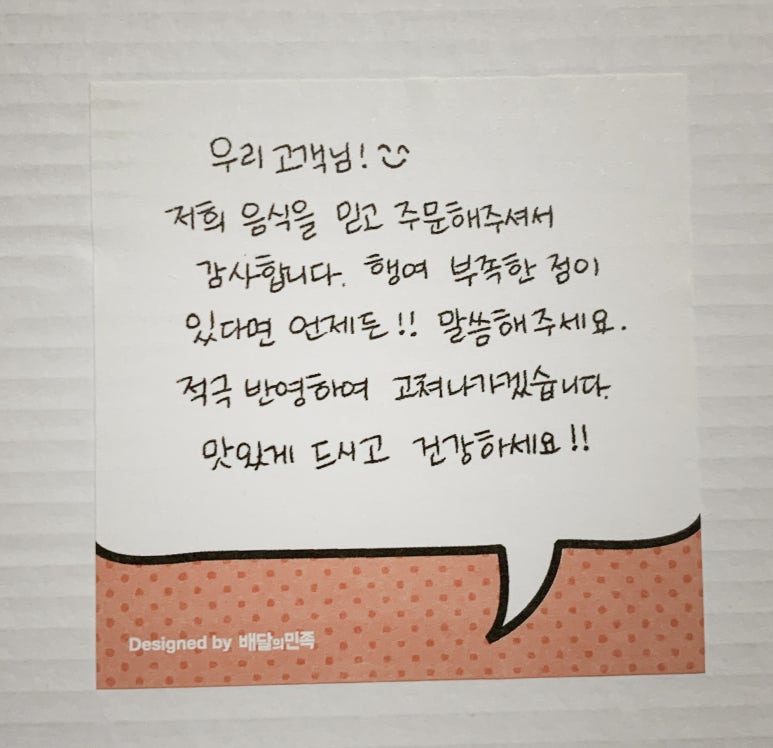 우리 고객님! ^^
저희 음식을 믿고 주문해주셔서
감사합니다. 행여 부족한 점이
있다면 언제든!! 말씀해주세요.
적극 반영하여 고쳐나가겠습니다.
맛있게 드시고 건강하세요!!
Designed by 배달의민족